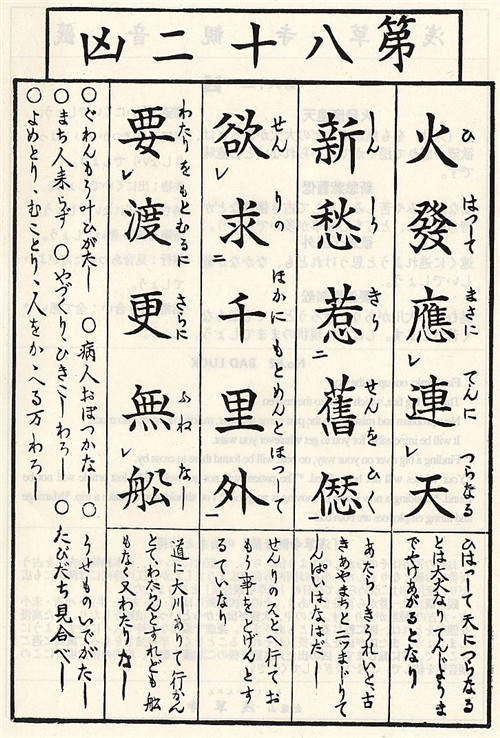 第八十二凶
火發應連天
ひ はつて まさに てんに つらなる
ひはつて天につらなる
とは大火なりてんじようま
でやけあがるとなり
新愁惹舊愆
しんしう きう せんをひく
あたらしきうれいと古
きあやまちと二ツまじりて
しんぱいはなはだし
欲求千里外
せんりの ほかにもとめんほつして
せんりのスとへ行てお
もう事をとげんとす
るていなり
要渡更無船
わたりをもとむるに さらに ふねなし
道に大川ありて行かん
とてわたらんすれども船
もなし又わたしなし
○ぐわんもう叶ひがたし ○病人おぼつかなし ○うせものいでがたし
○まち人来らず ○やづくり、ひきこしわろし ○たびだち見合べし
○よめとり、むことり、人をかゝへる万わろし